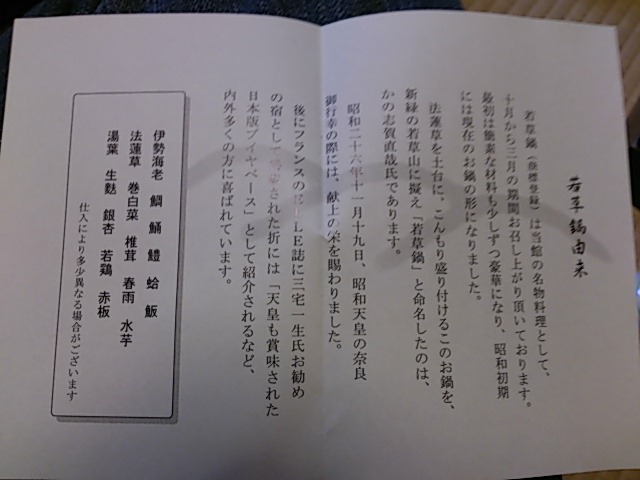 若草鍋由来
若草鍋（商標登録）は当館の名物料理として、
十月から三月の期間お召し上がり頂いております。
最初は簡素な材料も少しずつ豪華になり、昭和初期
には現在のお鍋の形になりました。
法蓮草を土台に、こんもり盛り付けるこのお鍋を、
新緑の若草山に擬え「若草鍋」と命名したのは、
かの志賀直哉氏であります。
昭和二十六年十一月十九日、昭和天皇の奈良
御行幸の際には、献上の栄を賜わりました。
後にフランスのELLE誌に三宅一生氏お勧め
の宿として された折には「天皇も賞味された
日本版ブイヤベース」として紹介されるなど、
内外多くの方に喜ばれています。
伊勢海老 鯛 鯒 鱧 蛤 飯
法蓮草 巻白菜 椎茸 春雨 水芋
湯葉 生麩 銀杏 若鶏 赤板
仕入により多少異なる場合がございます